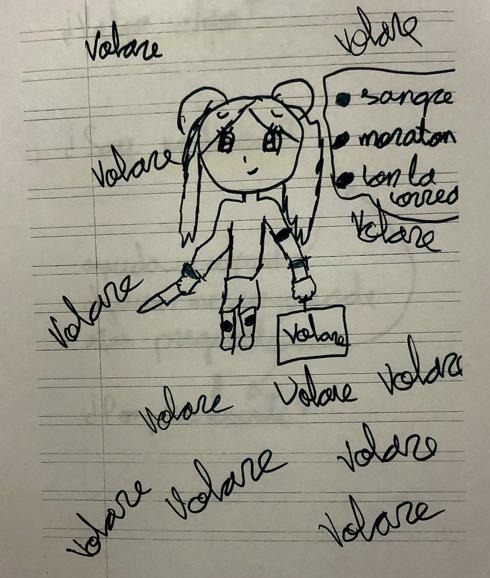 Volare
Volare
sangre
moraton
Volare
con la
correo
Volare
Volare
Volare
Volare
Volare
Volare
Volare
Volare
Volare
Volare